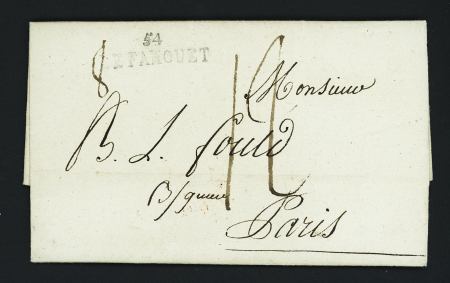 54
LE FAHOUET
8
Monsieur
B. L. fould
B/quier
Paris